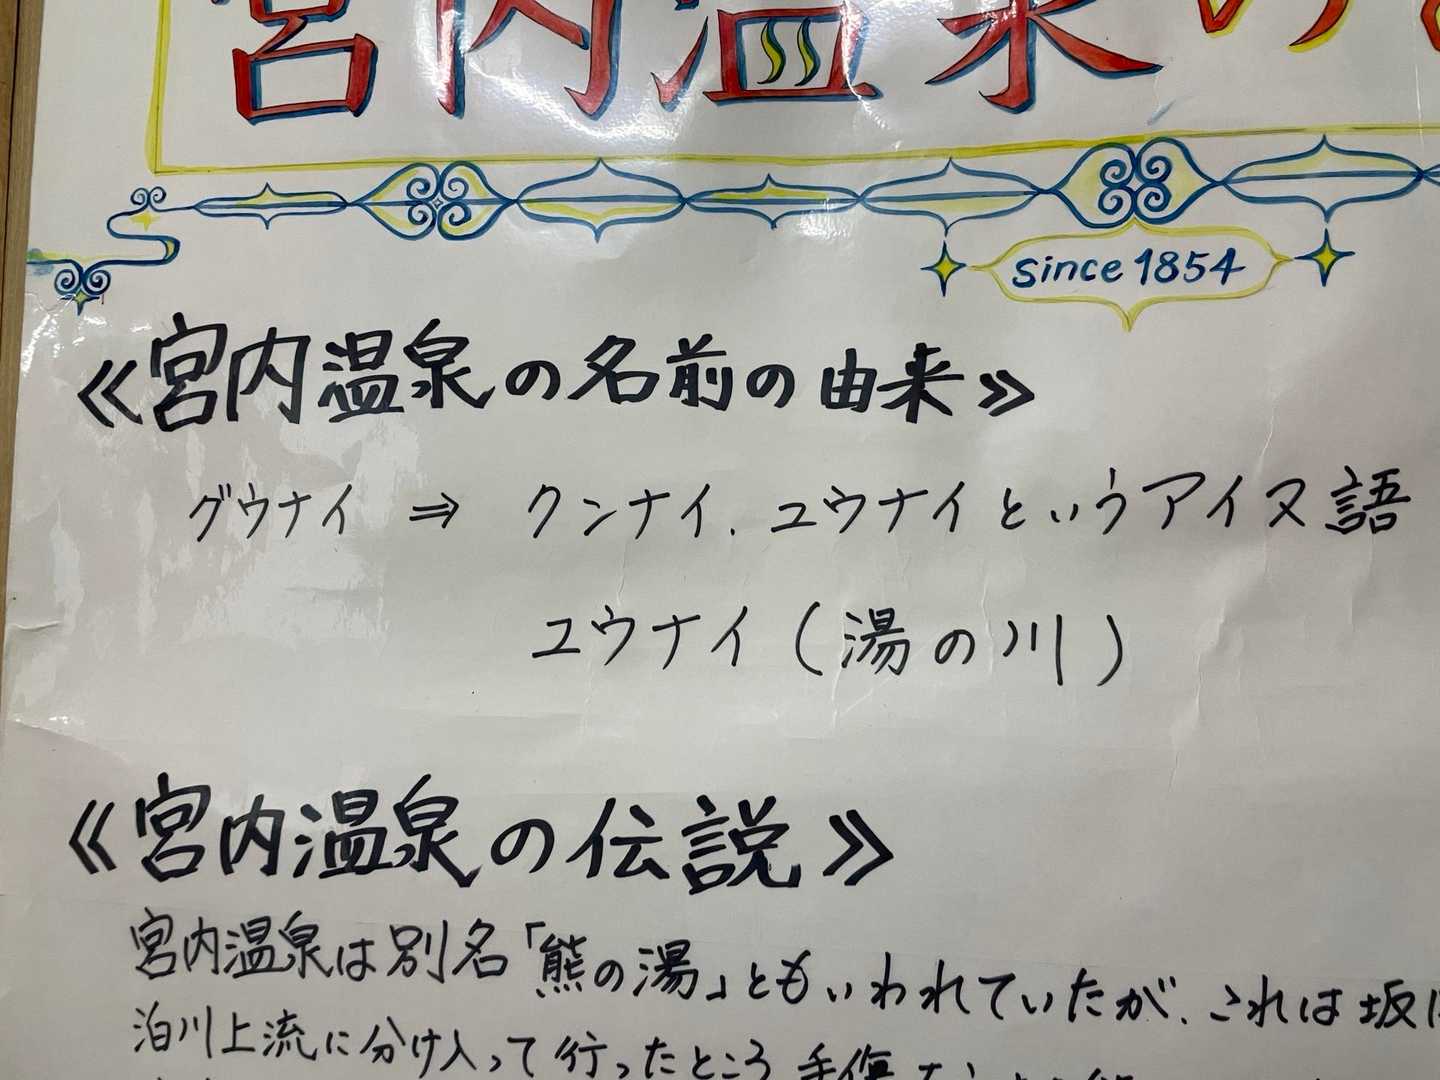 宮内温泉の
since 1854
《宮内温泉の名前の由来》
グウナイ ⇒ クンナイ、ユウナイというアイヌ語
ユウナイ（湯の川）
《宮内温泉の伝説》
宮内温泉は別名「熊の湯」ともいわれていたが、これは坂
泊川上流に分け入って行ったところ手傷